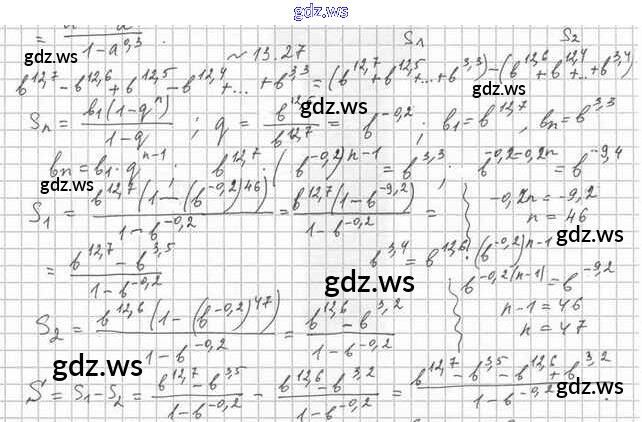 gdz.ws
= / 1-a^0,3 .
~ 13.27 S1 S2
b^12,7 - b^12,6 + b^12,5 - b^12,4 + ... + b^3,3 = (b^12,7 + b^12,5 + ... + b^3,3) - (b^12,6 + b^12,4 + .. + b^3,4)
gdz.ws
gdz.ws
gdz.ws
Sn = b1(1-q^n) / 1-q ; q = b^12,5 / b^12,7 = b^-0,2 ; b1 = b^12,7 , bn = b^3,3
bn = b1·q^n-1 ; b^12,7·(b^-0,2)^n-1 = b^3,3 ; b^-0,2-0,2n = b^-9,4
gdz.ws
S1 = b^12,7(1-(b^-0,2)^46) / 1-b^-0,2 = b^12,7(1-b^-9,2) / 1-b^-0,2 = -0,2n = -9,2
n = 46
gdz.ws
= b^12,7 - b^3,5 / 1-b^-0,2 b^3,4 = b^12,6·(b^-0,2)^n-1
gdz.ws
b^-0,2(n-1) = b^-9,2
n-1 = 46
n = 47
S2 = b^12,6(1-(b^-0,2)^47) / 1-b^-0,2 = b^12,6 - b^3,2 / 1-b^-0,2
gdz.ws
gdz.ws
S = S1-S2 = b^12,7 - b^3,5 / 1-b^-0,2 - b^12,6 - b^3,2 / 1-b^-0,2 = b^12,7 - b^3,5 - b^12,6 + b^3,2 / 1-b^-0,2 .
gdz.ws